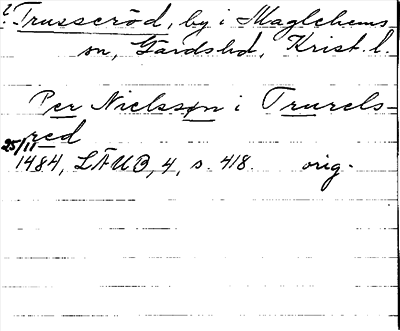 ? Trusseröd, by i Maglehems
sn, Gärdsl.hd, Krist. l.
Per Nielssøn i Trurels-
red
25/11
1484, LÄUB, 4, s. 418. orig.